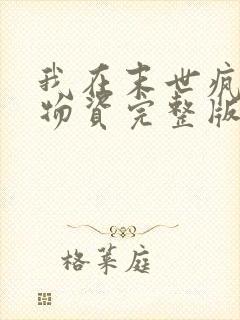 我在末世疯
物资完整版
格莱庭